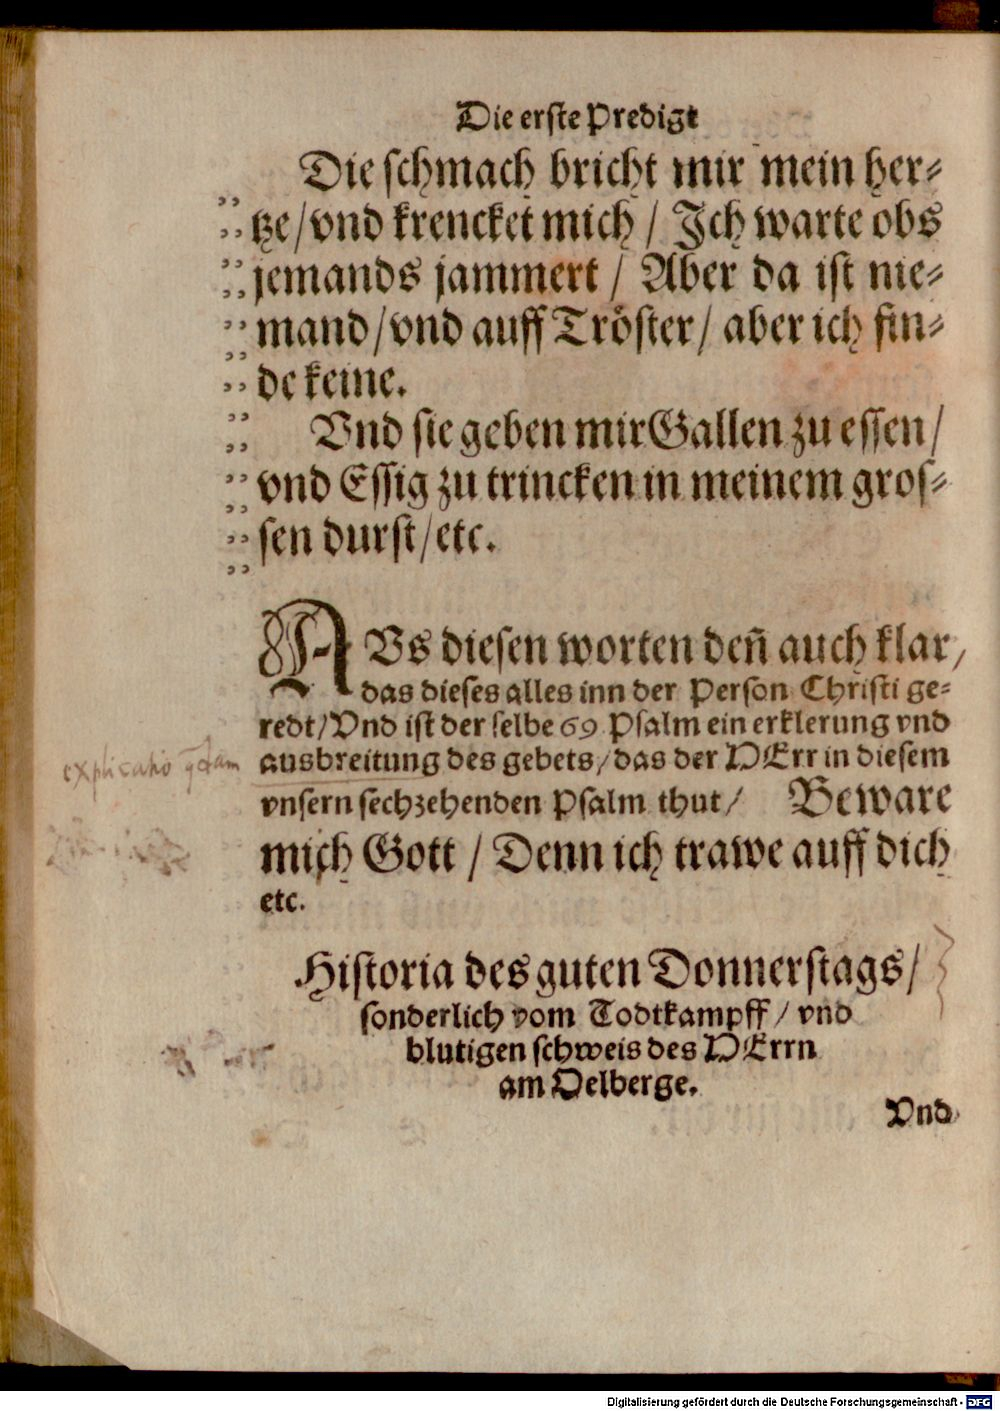 Die erste Predigt
Die schmach bricht mir mein her⸗
tze/vnd krencket mich / Ich warte obs
jemands jammert / Aber da ist nie⸗
mand/vnd auff Tröster/ aber ich fin⸗
de keine.
Vnd sie geben mir Gallen zu essen/
vnd Essig zu trincken in meinem gros⸗
sen durst/etc.
AVs diesen worten deñ auch klar,
das dieses alles inn der Person Christi ge⸗
redt/Vnd ist der selbe 69 Psalm ein erklerung vnd
explicatio
ausbreitung des gebets/das der HErr in diesem
vnsern sechzehenden Psalm thut/ Beware
mich Gott / Denn ich trawe auff dich
etc.
Historia des guten Donnerstags/
sonderlich vom Todtkampff/ vnd
blutigen schweis des HErrn
am Oelberge.
Vnd
Digitalisierung gefördert durch die Deutsche Forschungsgemeinschaft - DFG